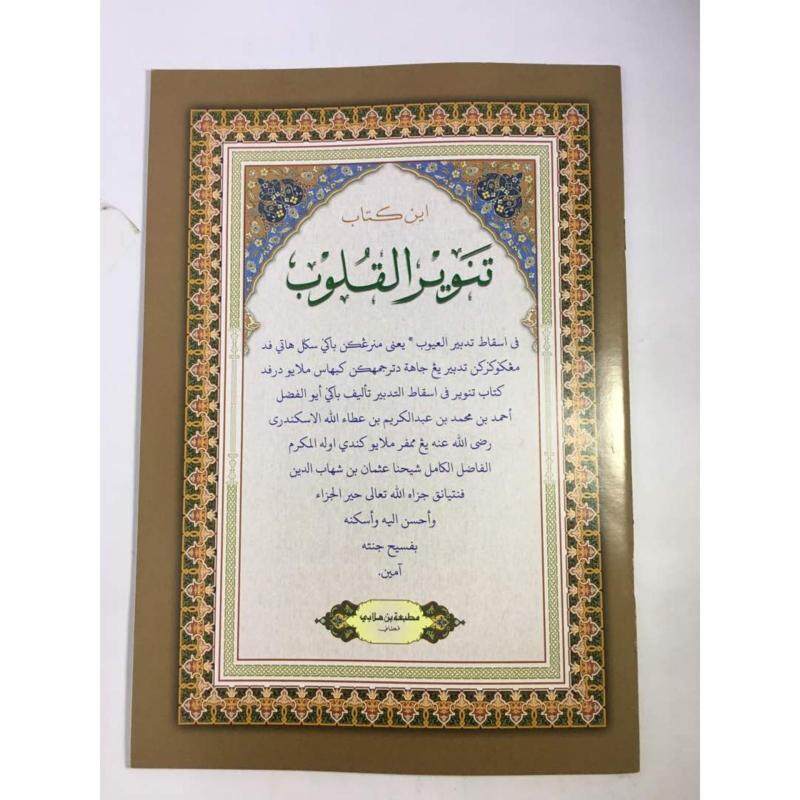 اين كتاب
تَنوِيْرالقُلُوْب
فى اسقاط تدبير العيوب * يعنى منرڠكن باڬي سكل هاتي فد
مڠكوڬركن تدبير يڠ جاهة دترجمهكن كبهاس ملايو درفد
كتاب تنوير فى اسقاط التدبير تأليف باڬي أبو الفضل
أحمد بن محمد بن عبدالكريم بن عطاء الله الاسكندرى
رضى الله عنه يڠ ممفر ملايو كندي اوله المكرم
الفاضل الكامل شيحنا عثمان بن شهاب الدين
فنتيانق جزاه الله تعالى حير الجزاء
وأحسن اليه وأسكنه
بفسيح جنته
آمين.
مطبعة بن هلابي
فطاني